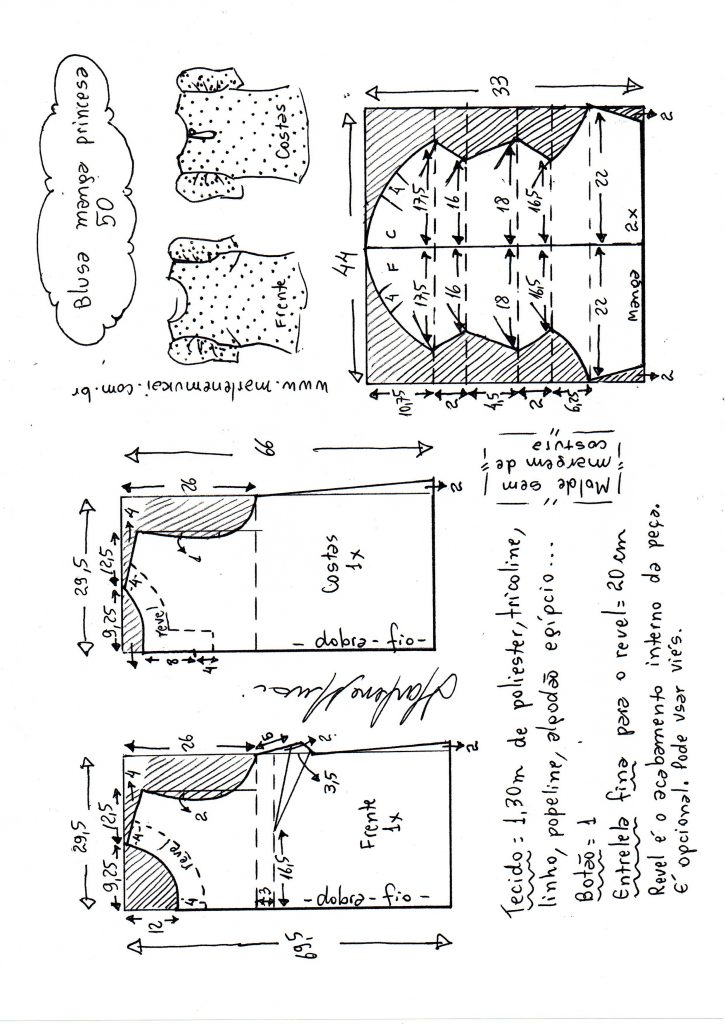 Blusa manga princesa
50
Costas
Frente
www.marlenemukai.com.br
44
33
C
F
4
4
17,5
17,5
16
16
18
18
16,5
16,5
22
22
Manga
2x
10,75
2
4,5
2
6,25
2
2
29,5
9,25
12,5
4
26
66
4
1
revel
8
4
Costas
1x
-dobra-fio-
2
Molde sem
margem de
costura
29,5
9,25
12,5
4
26
69,5
12
4
2
revel
4
6
2
3,5
3
16,5
Frente
1x
-dobra-fio-
2
Marlene Mukai
Tecido = 1,30m de poliester, tricoline,
linho, popeline, algodão egípcio...
Botão = 1
Entretela fina para o revel = 20 cm
Revel é o acabamento interno da peça.
É opcional. Pode usar viés.